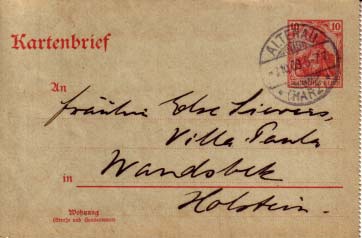 Kartenbrief
10
ALTENAU
(HARZ)
An
Fräulein Else Sievers,
Villa Paula
in Wandsbek
Holstein.
Wohnung
(Straße und Hausnummer)